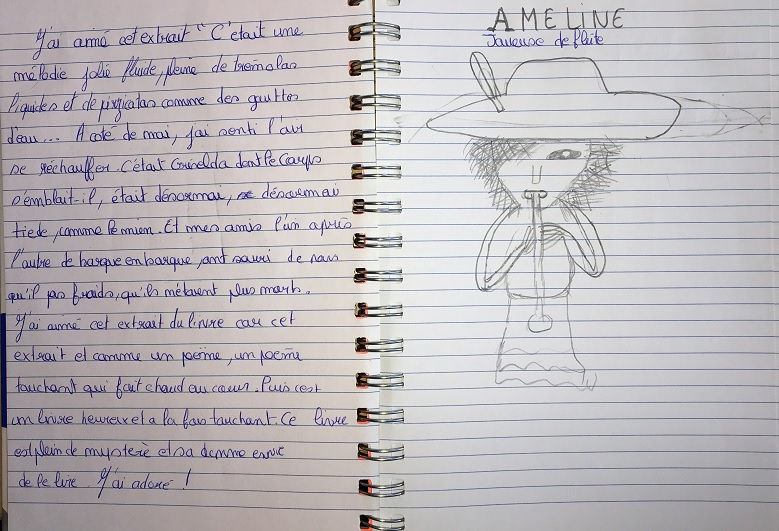 J'ai aimé cet extrait " C'était une
mélodie jolie fluide, pleine de tremolas
liquides et de pizzicatos comme des gouttes
d'eau... A coté de moi, j'ai senti l'air
se réchauffer. C'était Griselda dont le corps
semblait-il, était désormai, se désormai
tiede, comme le mien. Et mes amis l'un après
l'autre de barque en barque, ont souri de nous
qu'il pas froids, qu'ils n'étaient plus morts.
J'ai aimé cet extrait du livre car cet
extrait et comme un poème, un poème
touchant qui fait chaud au coeur. Puis c'est
un livre heureux et a la fois touchant. Ce livre
est plein de mystère et sa donne envie
de le lire. J'ai adoré !
AMELINE
Joueuse de flûte